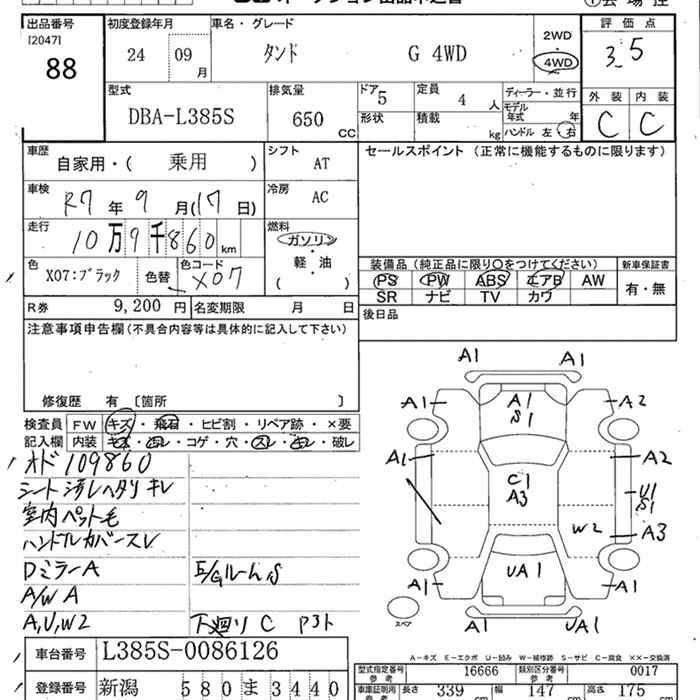 出品番号 初度登録年月 車名・グレード 評価点
[2047]
88 24 09 月 タンド G 4WD 2WD 4WD 3.5
型式 排気量 ドア 定員 ディーラー・並行 外装 内装
DBA-L385S 650 CC 5 4 人 モデル年式 年 C C
形状 積載 kg ハンドル 左・右
車歴 自家用・( 乗用 ) シフト AT セールスポイント (正常に機能するものに限ります)
車検 R7 年 9 月(17 日) 冷房 AC
走行 10万9千860 km 燃料 ガソリン・軽・油 ( )
色 X07:ブラック 色替 色コード X07
装備品 (純正品に限り○をつけてください) 新車保証書
PS PW ABS エアB AW 有・無
SR ナビ TV カワ
R券 9,200 円 名変期限 月 日 後日品
注意事項申告欄 (不具合内容等は具体的に記入して下さい)
修復歴 有 〔箇所 〕
検査員 FW キズ・飛石・ヒビ割・リペア跡・×要
記入欄 内装 キズ・汚レ・コゲ・穴・スレ・キレ・破レ
オド109860
シート汚レヘタリキレ
室内ペット毛
ハンドルカバースレ
DミラーA E/GルームS
A/W A
A,U,W2 下廻り C P3ト
A1 A1
A1 A1 S1 A2
A1 A2
C1 A3 U1 S1
W2 A3
UA1
A1 A1
スペア A1 UA1
A-キズ E-エクボ U-凹み W-補修跡 S-サビ C-腐食 ××-交換済
車台番号 L385S-0086126
型式指定番号 参考 16666 類別区分番号 参考 0017
登録番号 新潟 580 ま 3440
車庫証明用 参考 長さ 339 cm 幅 147 cm 高さ 175 cm